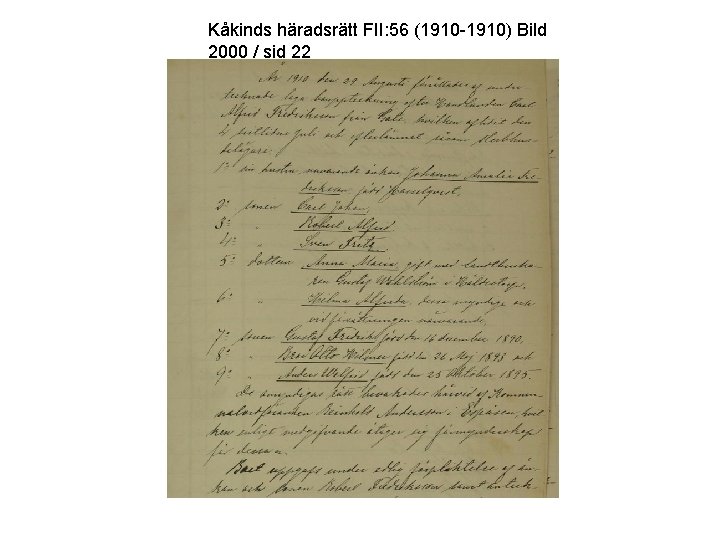 Kåkinds häradsrätt FII:56 (1910-1910) Bild
2000 / sid 22
År 1910 den 29 Augusti förrättades af under-
tecknade laga bouppteckning efter Handlanden Carl
Alfred Fredriksson från hvilken aflidit den
4 sistlidne Juli och efterlämnat såsom sterbhus-
delägare:
1o sin hustru, nuvarande enkan Johanna Amalia Fre-
driksson född Hasselqvist.
2o sonen Carl Johan,
3o " Robert Alfrid
4o " Sven Fritz
5o dottern Anna Maria, gift med landtbruka-
ren Gustaf Wahlström i
6o " Hilma Alfrida, dessa myndige och
vid förrättningen närvarande,
7o sonen Gustaf Fredrik född den 16 december 1890,
8o " Otto Hilmer född den 26 Maj 1893 och
9o " Anders född den 25 Oktober 1895.
De omyndigas rätt bevakades härvid af Kommu-
nalordföranden Reinhold Andersson i hvil-
ken enligt medgifvande åtager sig förmynderskap
för dessa.
Boet uppgafs under edlig förpliktelse af än-
kan och sonen Robert Fredriksson samt anteck-